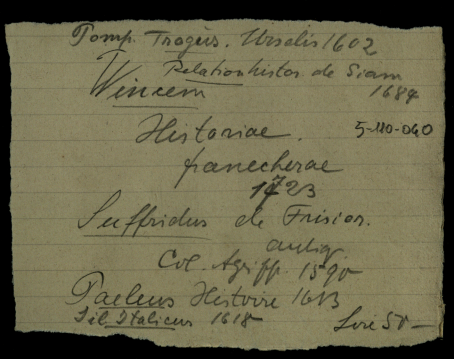 Pomp. Trogus. Ursalis 1602
Relation histor. de Siam
1684
Wincem
Historiae. 5-110-040
franecherae
1723
Suffridus de Frisior.
antiq.
Col. Agripp. 1590
Paeleus Histoire 1613
Sil. Italicus 1618 50-